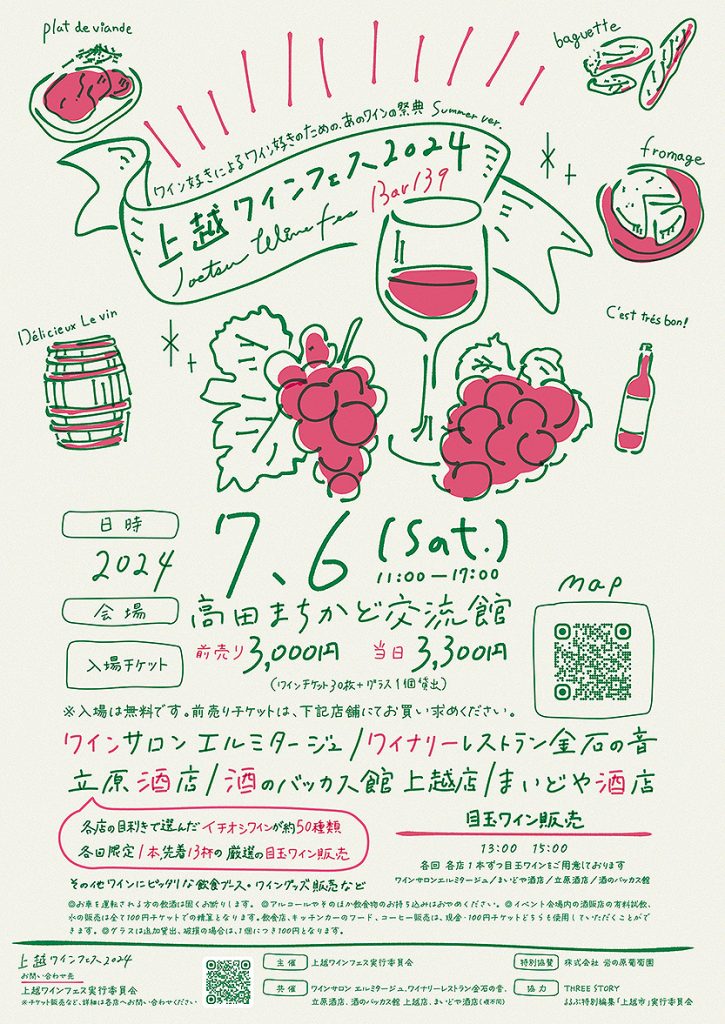 plat de viande
baguette
ワイン好きによるワイン好きのための、あのワインの祭典 Summer ver.
fromage
上越ワインフェス2024
Joetsu Wine Fes Bar139
Délicieux Le vin
C'est trés bon!
日時
2024 7、6 (Sat.)
11:00—17:00
map
会場
高田まちかど交流館
入場チケット
前売り3,000円 当日3,300円
(ワインチケット30枚+グラス1個貸出)
※入場は無料です。前売りチケットは、下記店舗にてお買い求めください。
ワインサロン エルミタージュ/ワイナリーレストラン金石の音
立原酒店/酒のバッカス館 上越店/まいどや酒店
各店の目利きで選んだイチオシワインが約50種類
各回限定1本、先着13杯の厳選の目玉ワイン販売
目玉ワイン販売
13:00 15:00
各回 各店1本ずつ目玉ワインをご用意しております
ワインサロンエルミタージュ/まいどや酒店/立原酒店/酒のバッカス館
その他ワインにピッタリな飲食ブース・ワイングッズ販売など
◎お車を運転される方の飲酒は固くお断りします。 ◎アルコールやそのほか飲食物のお持ち込みはおやめください。 ◎イベント会場内の酒販店の有料試飲、
水の販売は全て100円チケットでの精算となります。飲食店、キッチンカーのフード、コーヒー販売は、現金・100円チケットどちらも使用していただくことがで
きます。 ◎グラスは追加貸出、破損の場合は、1個につき100円となります。
上越ワインフェス2024
お問い合わせ先
上越ワインフェス実行委員会
※チケット販売など、詳細は各店へお問い合わせください
主催 上越ワインフェス実行委員会
共催 ワインサロン エルミタージュ、ワイナリーレストラン金石の音、
立原酒店、酒のバッカス館 上越店、まいどや酒店(順不同)
特別協賛 株式会社 岩の原葡萄園
協力 THREE STORY
まるぶ特別編集「上越市」実行委員会